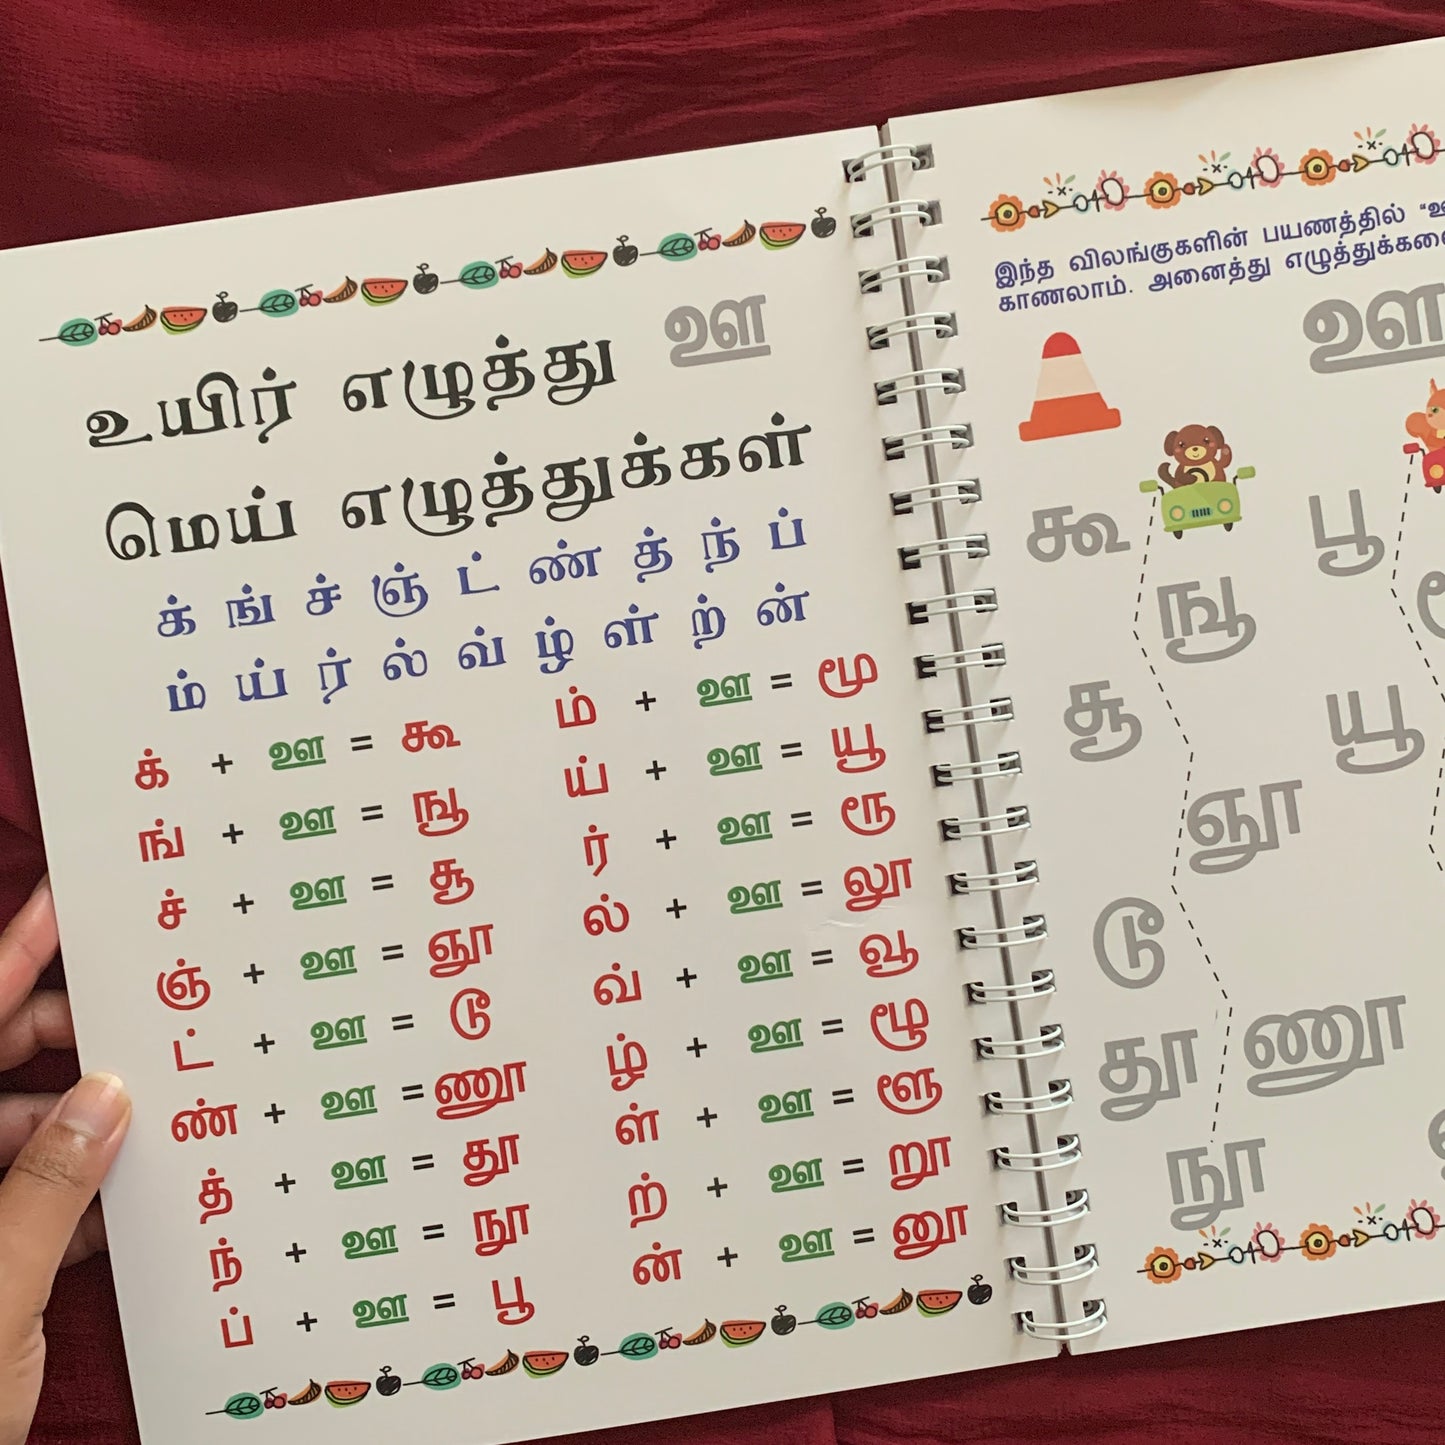 உயிர் எழுத்து ஊ
மெய் எழுத்துக்கள்
க் ங் ச் ஞ் ட் ண் த் ந் ப்
ம் ய் ர் ல் வ் ழ் ள் ற் ன்
க் + ஊ = கூ
ங் + ஊ = ஙூ
ச் + ஊ = சூ
ஞ் + ஊ = ஞூ
ட் + ஊ = டூ
ண் + ஊ = ணூ
த் + ஊ = தூ
ந் + ஊ = நூ
ப் + ஊ = பூ
ம் + ஊ = மூ
ய் + ஊ = யூ
ர் + ஊ = ரூ
ல் + ஊ = லூ
வ் + ஊ = வூ
ழ் + ஊ = ழூ
ள் + ஊ = ளூ
ற் + ஊ = றூ
ன் + ஊ = னூ
இந்த விலங்குகளின் பயணத்தில் "ஊ
காணலாம். அனைத்து
ஊ
கூ பூ
ஙூ
சூ யூ
ஞூ
டூ
தூ ணூ
நூ